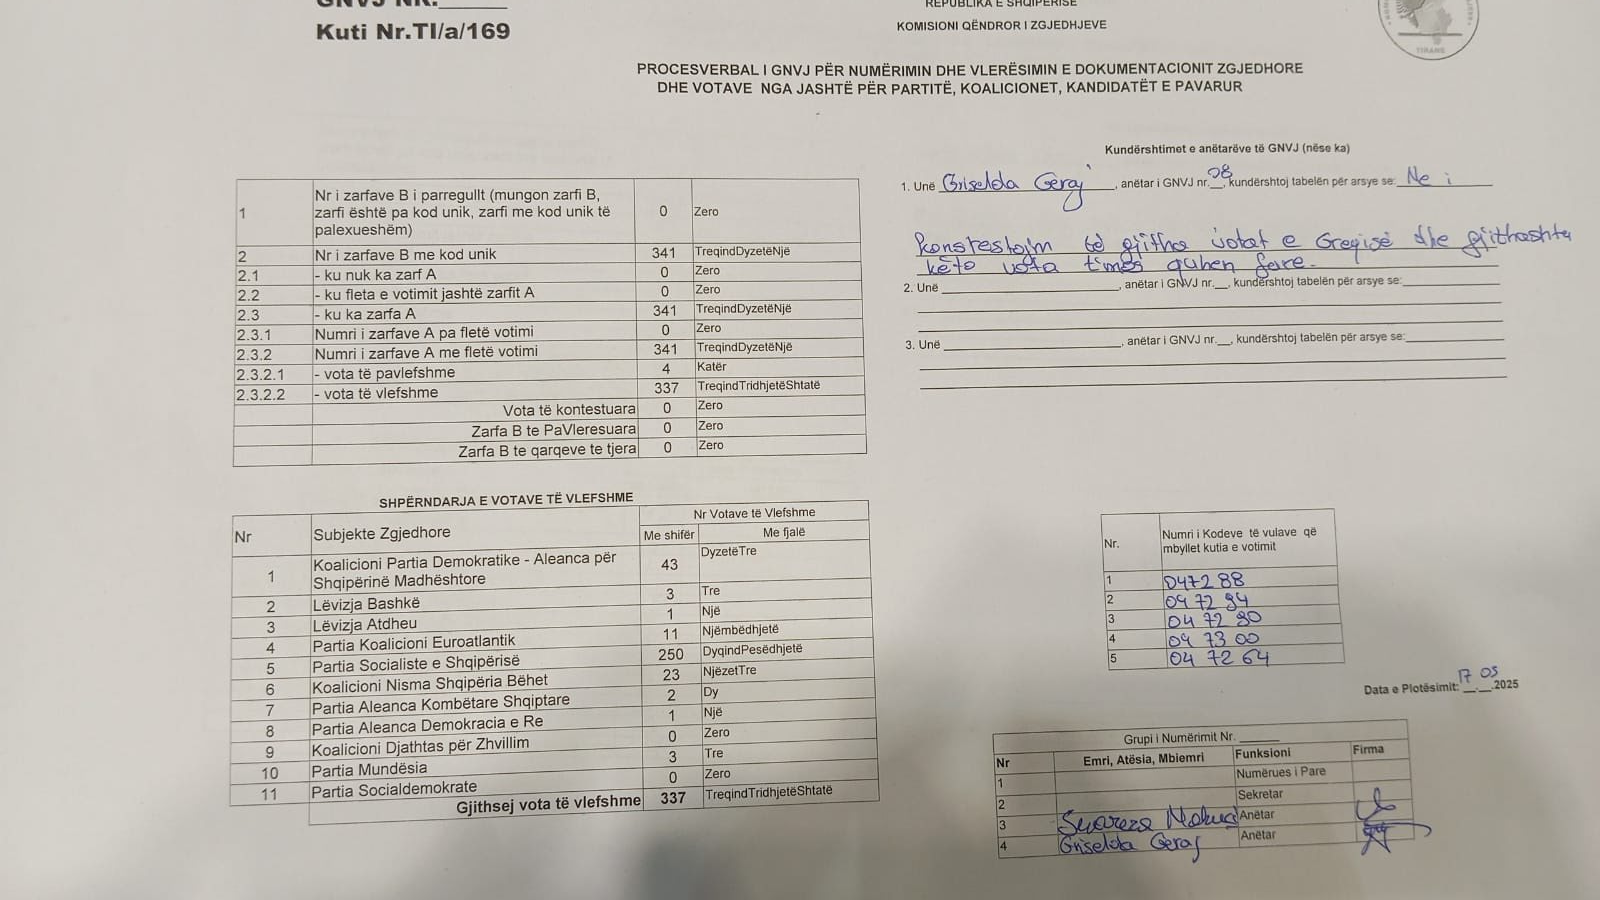 GNVJ NR.______
Kuti Nr.TI/a/169
REPUBLIKA E SHQIPERISE
KOMISIONI QËNDROR I ZGJEDHJEVE
TIRANE
PROCESVERBAL I GNVJ PËR NUMËRIMIN DHE VLERËSIMIN E DOKUMENTACIONIT ZGJEDHORE
DHE VOTAVE NGA JASHTË PËR PARTITË, KOALICIONET, KANDIDATËT E PAVARUR
1 Nr i zarfave B i parregullt (mungon zarfi B, zarfi është pa kod unik, zarfi me kod unik të palexueshëm) 0 Zero
2 Nr i zarfave B me kod unik 341 TreqindDyzetëNjë
2.1 - ku nuk ka zarf A 0 Zero
2.2 - ku fleta e votimit jashtë zarfit A 0 Zero
2.3 - ku ka zarfa A 341 TreqindDyzetëNjë
2.3.1 Numri i zarfave A pa fletë votimi 0 Zero
2.3.2 Numri i zarfave A me fletë votimi 341 TreqindDyzetëNjë
2.3.2.1 - vota të pavlefshme 4 Katër
2.3.2.2 - vota të vlefshme 337 TreqindTridhjetëShtatë
Vota të kontestuara 0 Zero
Zarfa B te PaVleresuara 0 Zero
Zarfa B te qarqeve te tjera 0 Zero
Kundërshtimet e anëtarëve të GNVJ (nëse ka)
1. Unë Griselda Geraj, anëtar i GNVJ nr. 08, kundërshtoj tabelën për arsye se: Ne i
konstestojm të gjitha votat e Greqisë dhe gjithashtu
këto vota times quhen fare.
2. Unë ______, anëtar i GNVJ nr.__, kundërshtoj tabelën për arsye se:______
3. Unë ______, anëtar i GNVJ nr.__, kundërshtoj tabelën për arsye se:______
SHPËRNDARJA E VOTAVE TË VLEFSHME
Nr Subjekte Zgjedhore Nr Votave të Vlefshme
Me shifër Me fjalë
1 Koalicioni Partia Demokratike - Aleanca për Shqipërinë Madhështore 43 DyzetëTre
2 Lëvizja Bashkë 3 Tre
3 Lëvizja Atdheu 1 Një
4 Partia Koalicioni Euroatlantik 11 Njëmbëdhjetë
5 Partia Socialiste e Shqipërisë 250 DyqindPesëdhjetë
6 Koalicioni Nisma Shqipëria Bëhet 23 NjëzetTre
7 Partia Aleanca Kombëtare Shqiptare 2 Dy
8 Partia Aleanca Demokracia e Re 1 Një
9 Koalicioni Djathtas për Zhvillim 0 Zero
10 Partia Mundësia 3 Tre
11 Partia Socialdemokrate 0 Zero
Gjithsej vota të vlefshme 337 TreqindTridhjetëShtatë
Nr. Numri i Kodeve të vulave që mbyllet kutia e votimit
1 047288
2 047294
3 047290
4 047300
5 047264
Data e Plotësimit: 17.05.2025
Grupi i Numërimit Nr. ______
Nr Emri, Atësia, Mbiemri Funksioni Firma
1 Numërues i Pare
2 Sekretar
3 Anëtar
4 Griselda Geraj Anëtar